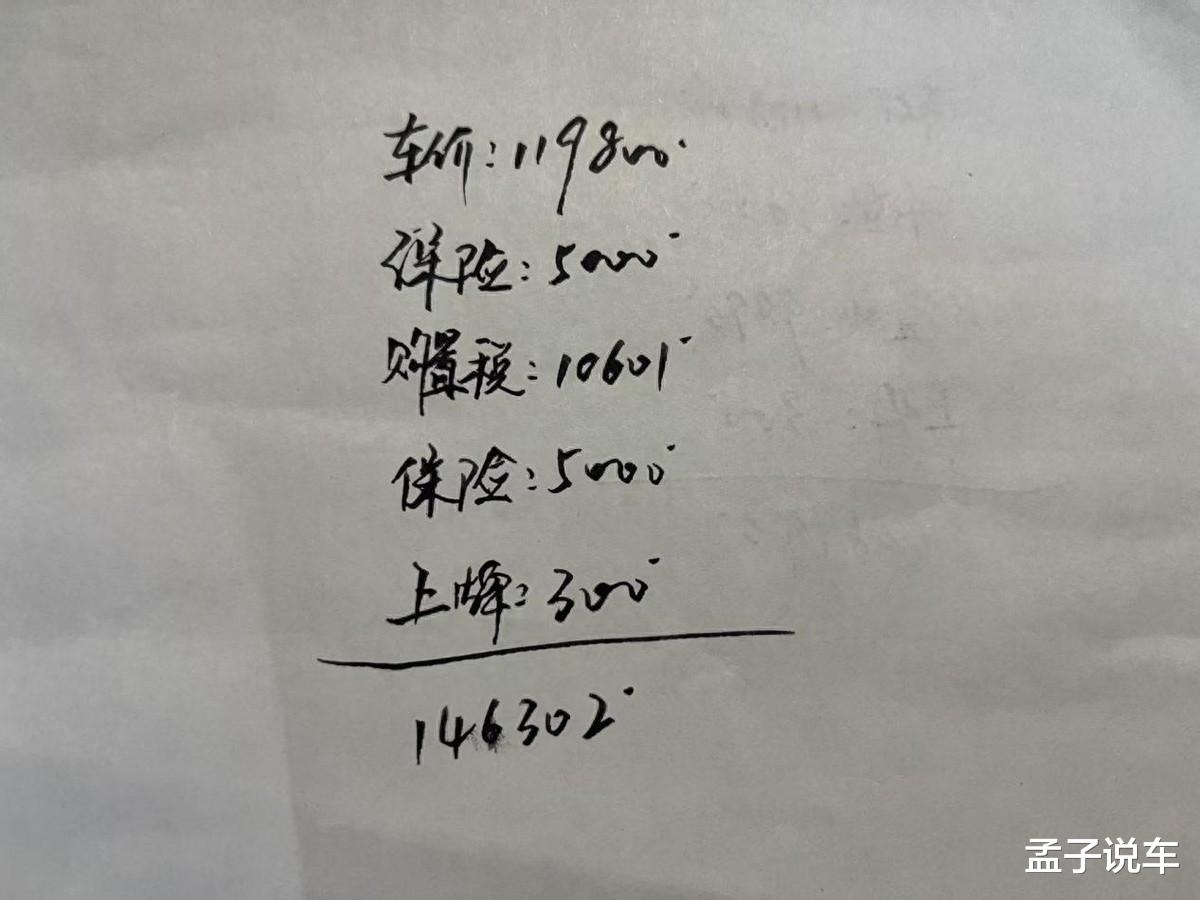 车价：119800
保险：5000
购置税：10601
保险：5000
上牌：300
146302
孟子说车